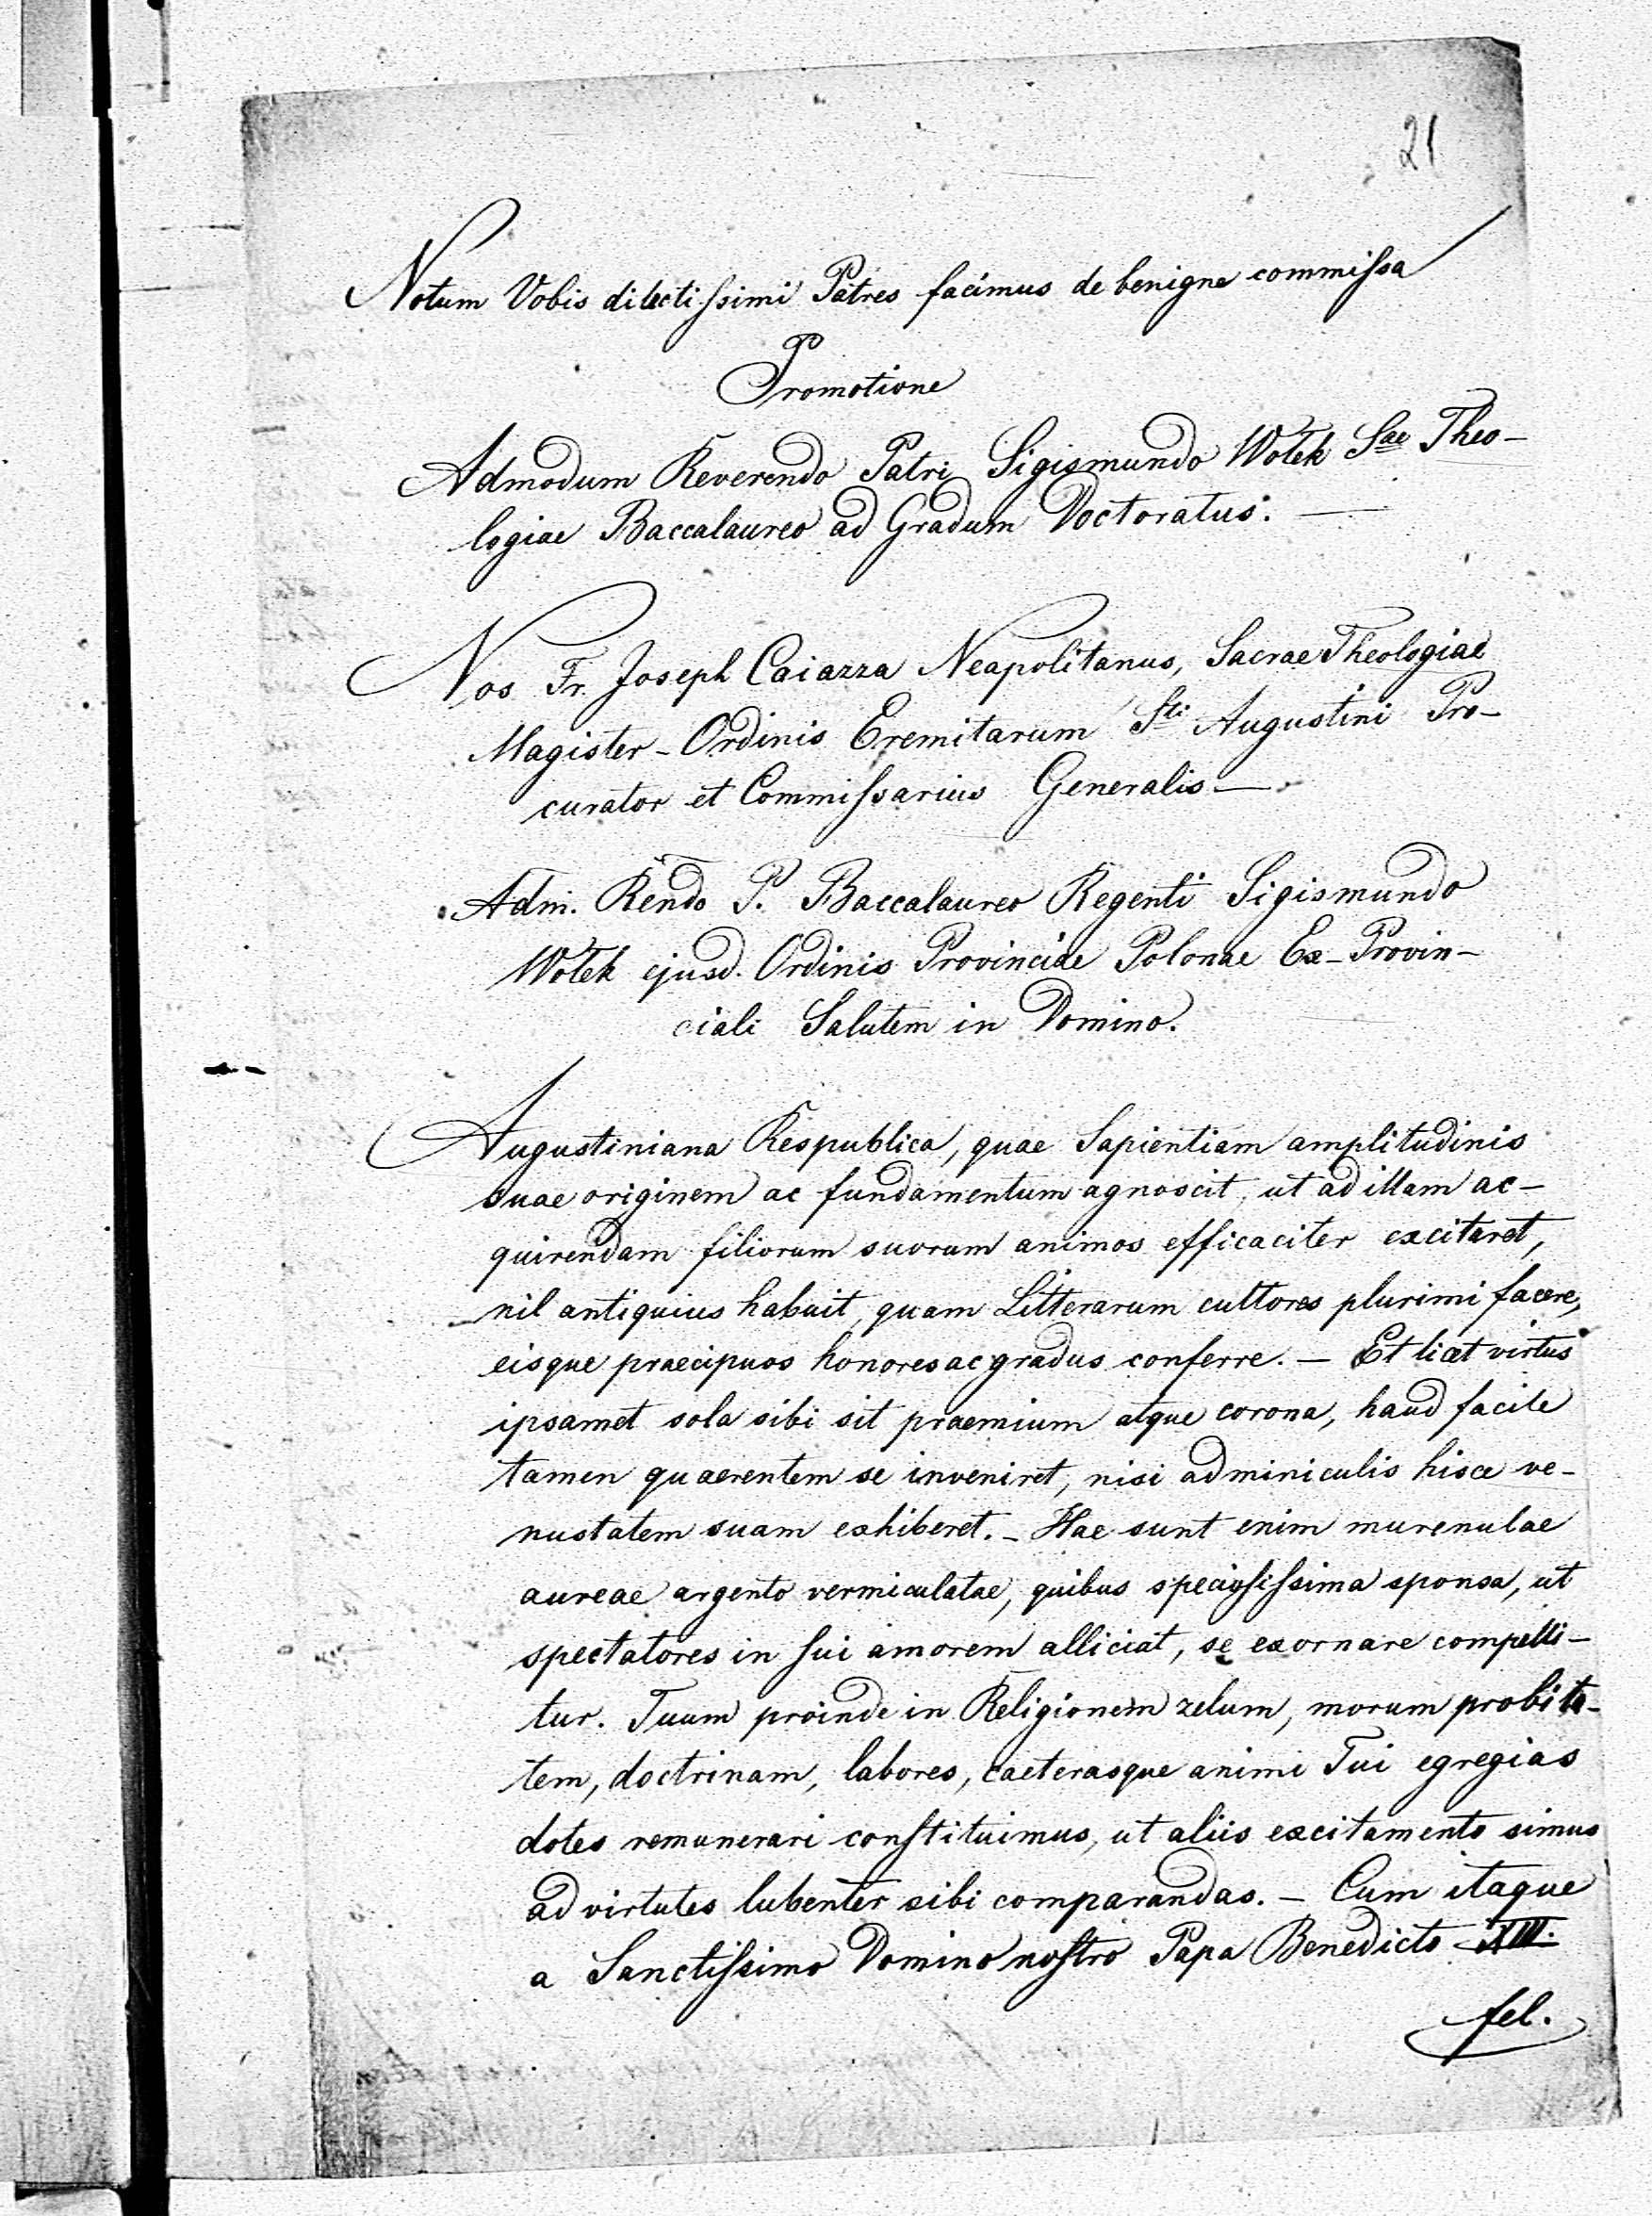 21
Notum Vobis dilectissimi Patres facimus de benigne commissa
Promotione
Admodum Reverendo Patri Sigismundo Wołek Sae Theo-
logiae Baccalaureo ad Gradum Doctoratus.
Nos Fr. Joseph Caiazza Neapolitanus, Sacrae Theologiae
Magister - Ordinis Eremitarum Sti Augustini Pro-
curator et Commissarius Generalis —
Adm. Rendo P. Baccalaureo Regenti Sigismundo
Wołek ejusd. Ordinis Provinciae Polonae Ex-Provin-
ciali Salutem in Domino.
Augustiniana Respublica, quae Sapientiam amplitudinis
suae originem ac fundamentum agnoscit, ut ad illam ac-
quirendam filiorum suorum animos efficaciter excitaret,
nil antiquius habuit, quam Litterarum cultores plurimi facere,
eisque praecipuos honores ac gradus conferre. — Et licet virtus
ipsamet sola sibi sit praemium atque corona, haud facile
tamen quaerentem se inveniret, nisi adminiculis hisce ve-
nustatem suam exhiberet. - Hae sunt enim murenulae
aureae argento vermiculatae, quibus speciosissima sponsa, ut
spectatores in sui amorem alliciat, se exornare compelli-
tur. Tuum proinde in Religionem zelum, morum probita-
tem, doctrinam, labores, caeterasque animi Tui egregias
dotes remunerari constituimus, ut aliis excitamento simus
ad virtutes lubenter sibi comparandas. — Cum itaque
a Sanctissimo Domino nostro Papa Benedicto XIII.
fel.